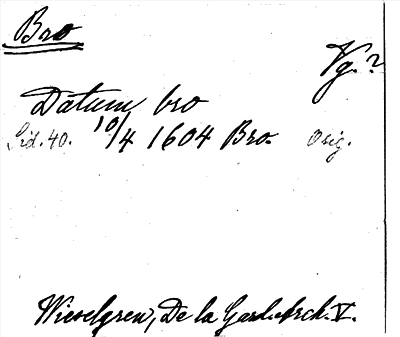 Bro
Vg.?
Datum bro
Sid. 40. 10/4 1604 Bro. Orig.
Wieselgren, De la Gard. Arch. V.